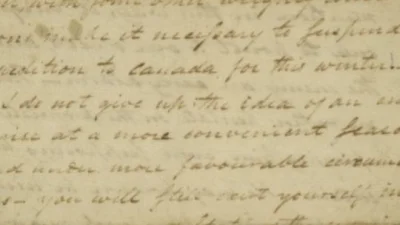 with some other weighty
ons made it necessary to suspend
pedition to canada for this winter.
I do not give up the idea of an en
rise at a more convenient Seaso
d under more favourable circums
s – you will still exert yourself in